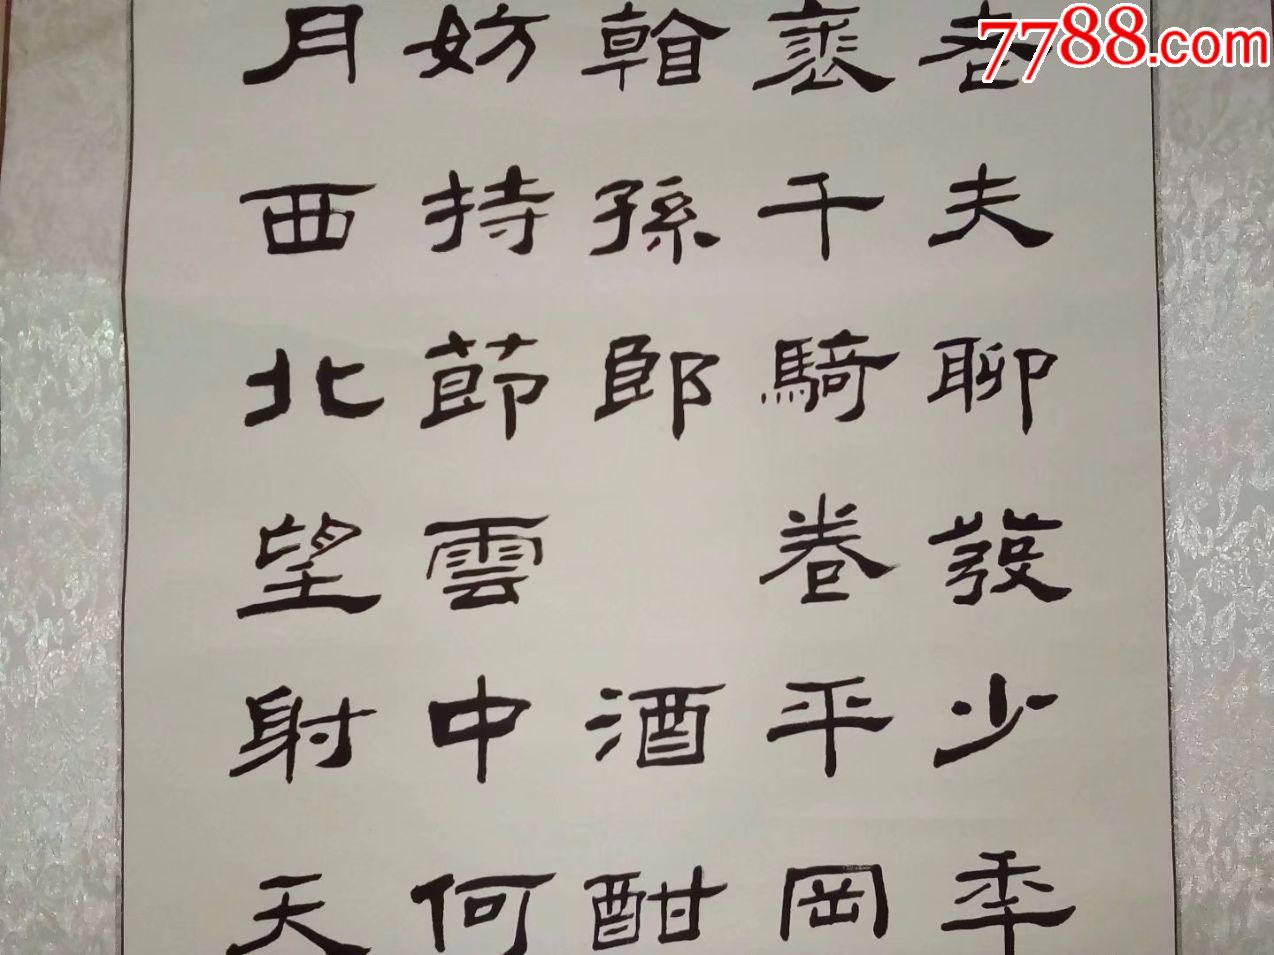 7788.com
老夫聊發少年
裘千騎卷平岡
看孫郎 酒酣
妨持節雲中何
月西北望射天